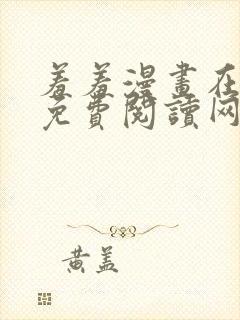 羞羞漫畫在
免費閱讀网
黄盖